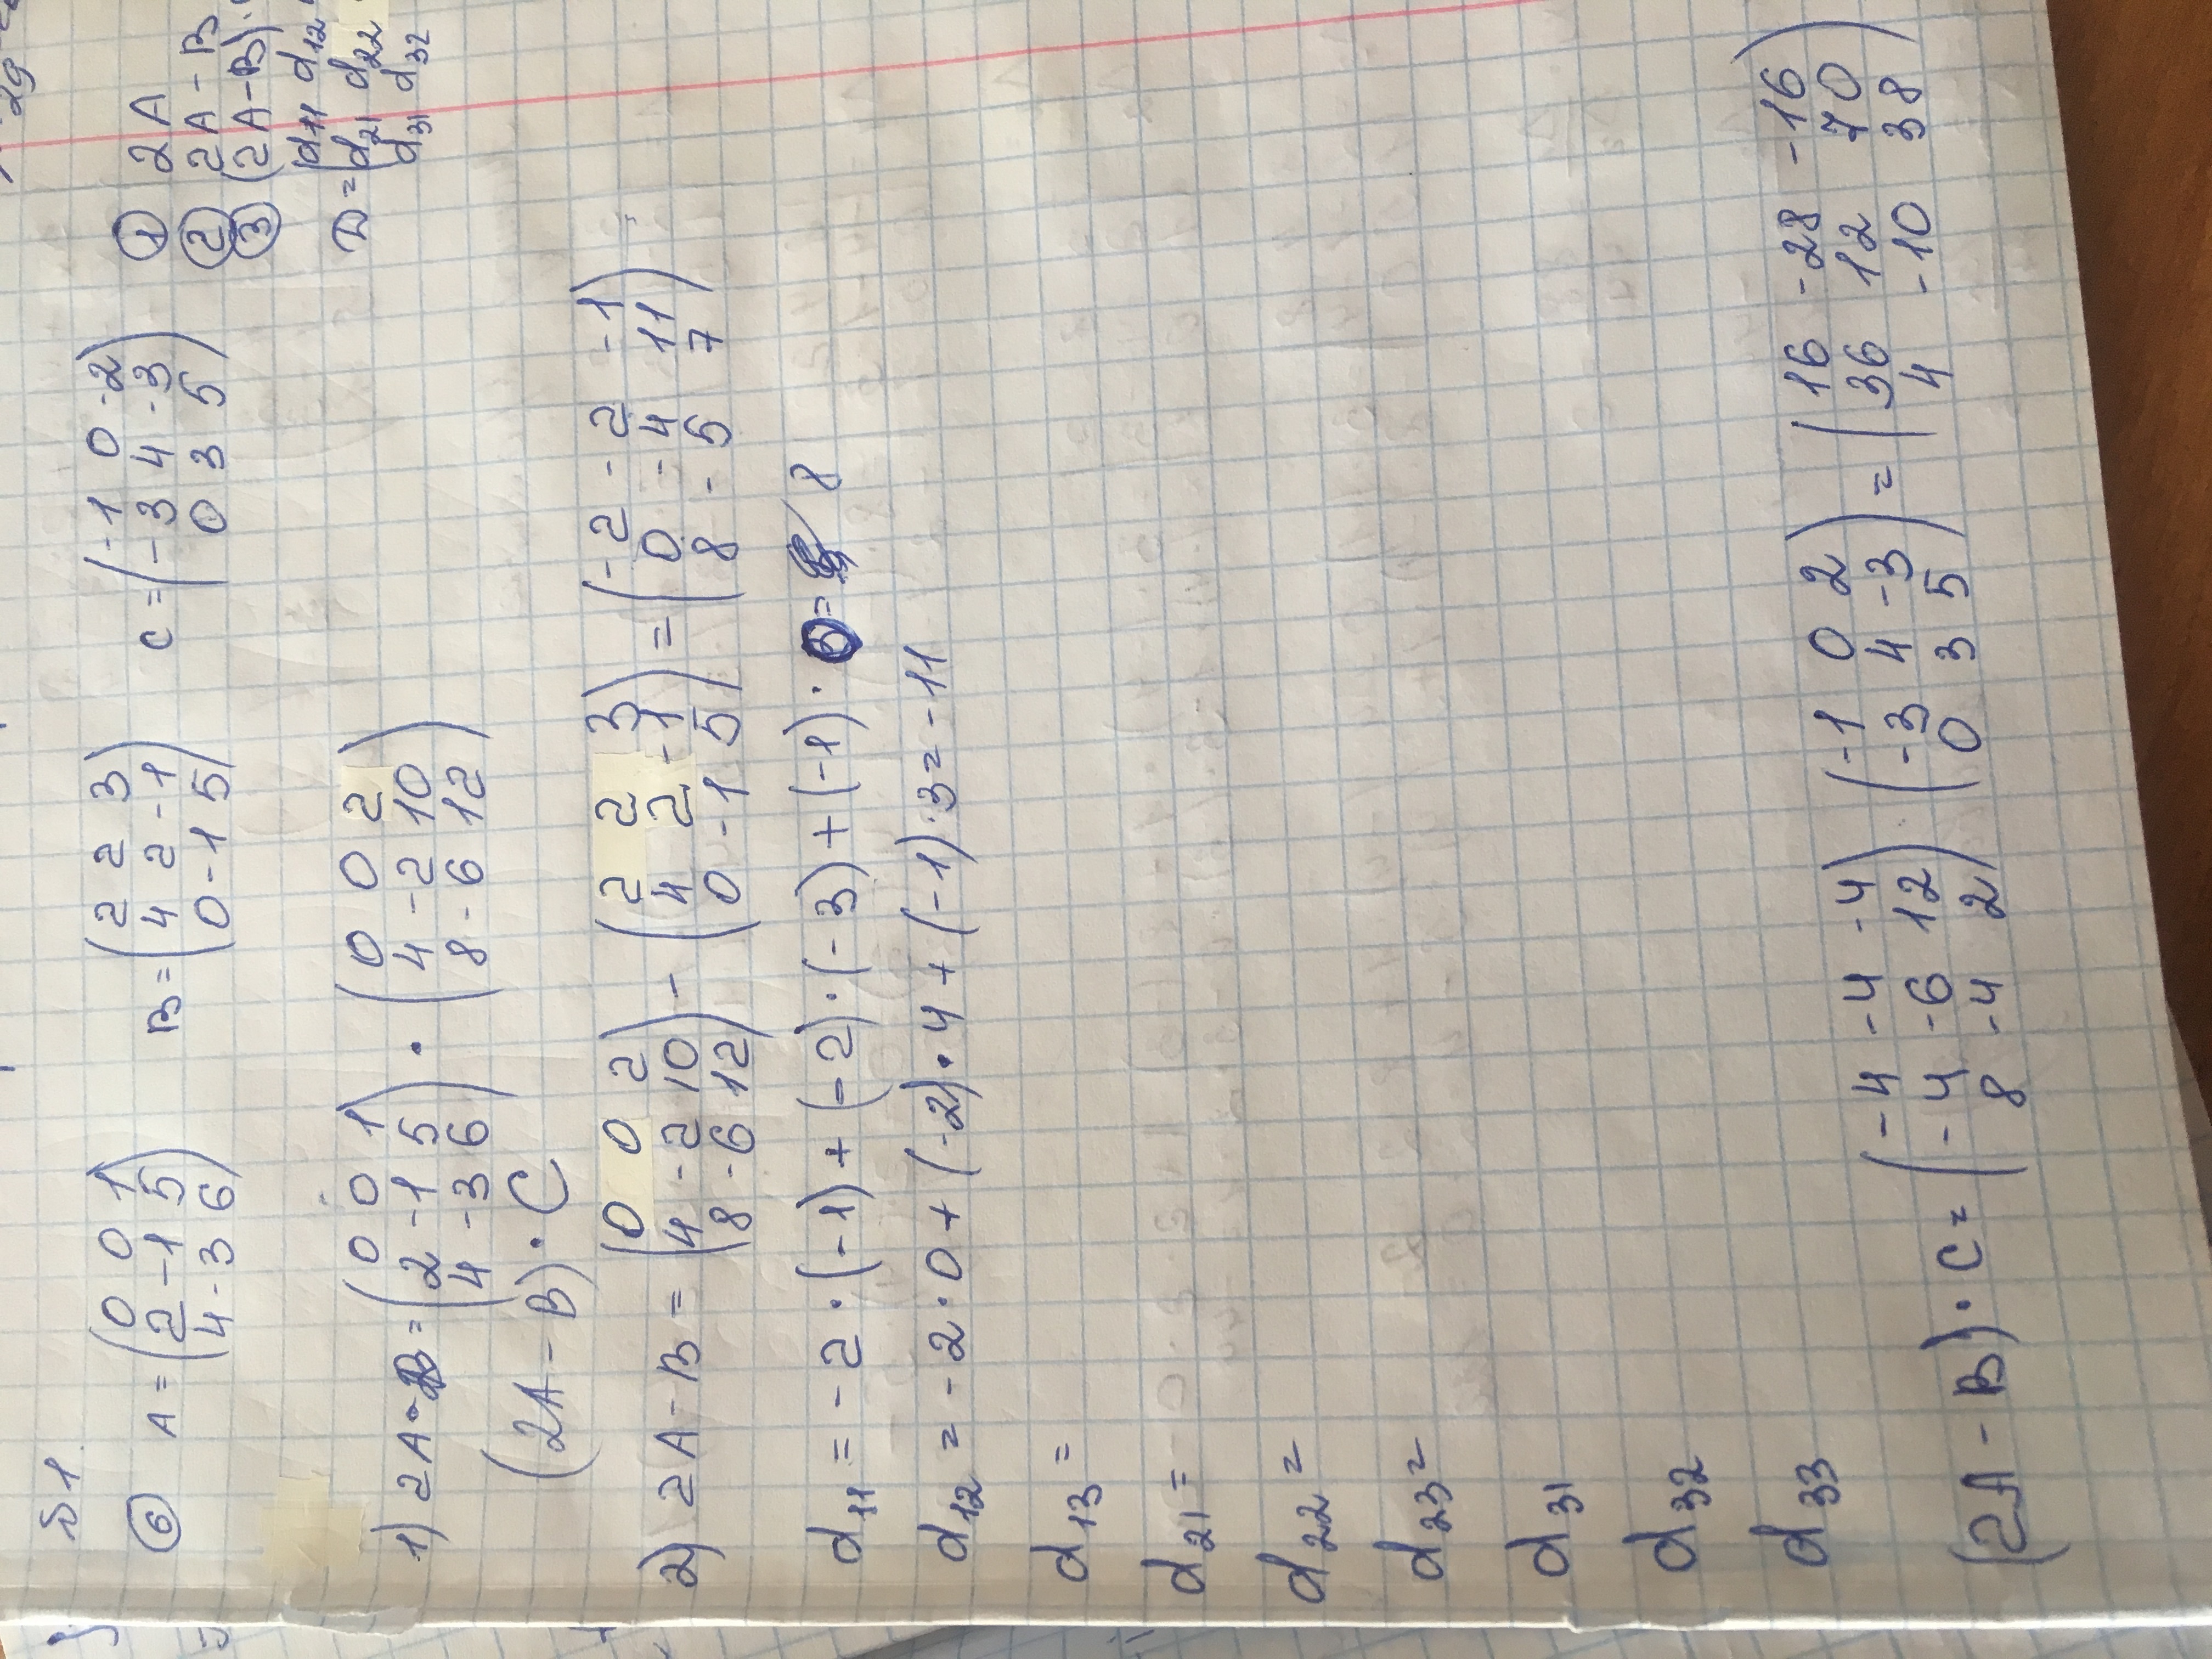 №1
⑥ A = (0 0 1
2 -1 5
4 -3 6)
B = (2 2 3
4 2 -1
0 -1 5)
C = (-1 0 -2
-3 4 -3
0 3 5)
① 2A
② 2A - B
③ (2A - B)
D = (d11 d12
d21 d22
d31 d32
1) 2A = (0 0 1
2 -1 5
4 -3 6) · (0 0 2
4 -2 10
8 -6 12)
(2A - B) · C
2) 2A - B = (0 0 2
4 -2 10
8 -6 12) - (2 2 3
4 2 -1
0 -1 5) = (-2 -2 -1
0 -4 11
8 -5 7)
d11 = -2 · (-1) + (-2) · (-3) + (-1) · 0 = 8
d12 = -2 · 0 + (-2) · 4 + (-1) · 3 = -11
d13 =
d21 =
d22 =
d23 =
d31
d32
d33
(2A - B) · C = (-4 -4 -4
-4 -6 12
8 -4 2) (-1 0 2
-3 4 -3
0 3 5) = (16 -28 -16
36 12 70
4 -10 38)